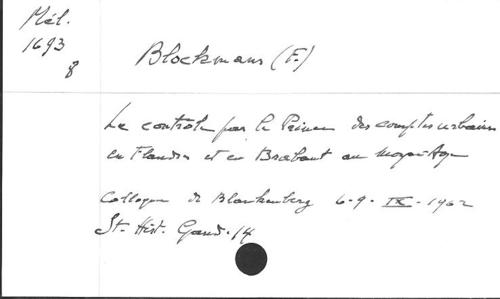 Mél.
1693
8
Blockmans (F.)
Le controle par le Prince des comptes urbains
en Flandre et en Brabant au Moyen Age
Colloque de Blankenberg 6-9. IX. 1962
St. Hist. Gand. 14